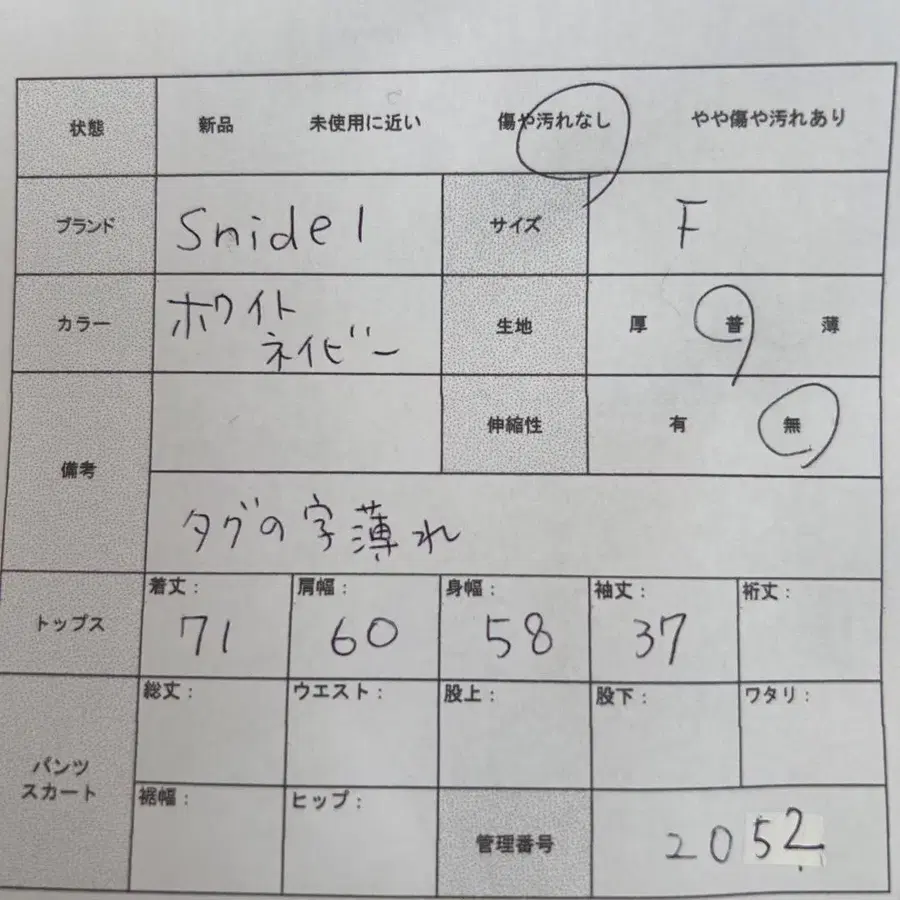 状態 新品 未使用に近い 傷や汚れなし やや傷や汚れあり
ブランド snidel サイズ F
カラー ホワイト
ネイビー
生地 厚 普 薄
備考 伸縮性 有 無
タグの字薄れ
トップス 着丈: 71 肩幅: 60 身幅: 58 袖丈: 37 裄丈:
パンツ
スカート
総丈: ウエスト: 股上: 股下: ワタリ:
裾幅: ヒップ: 管理番号 2052